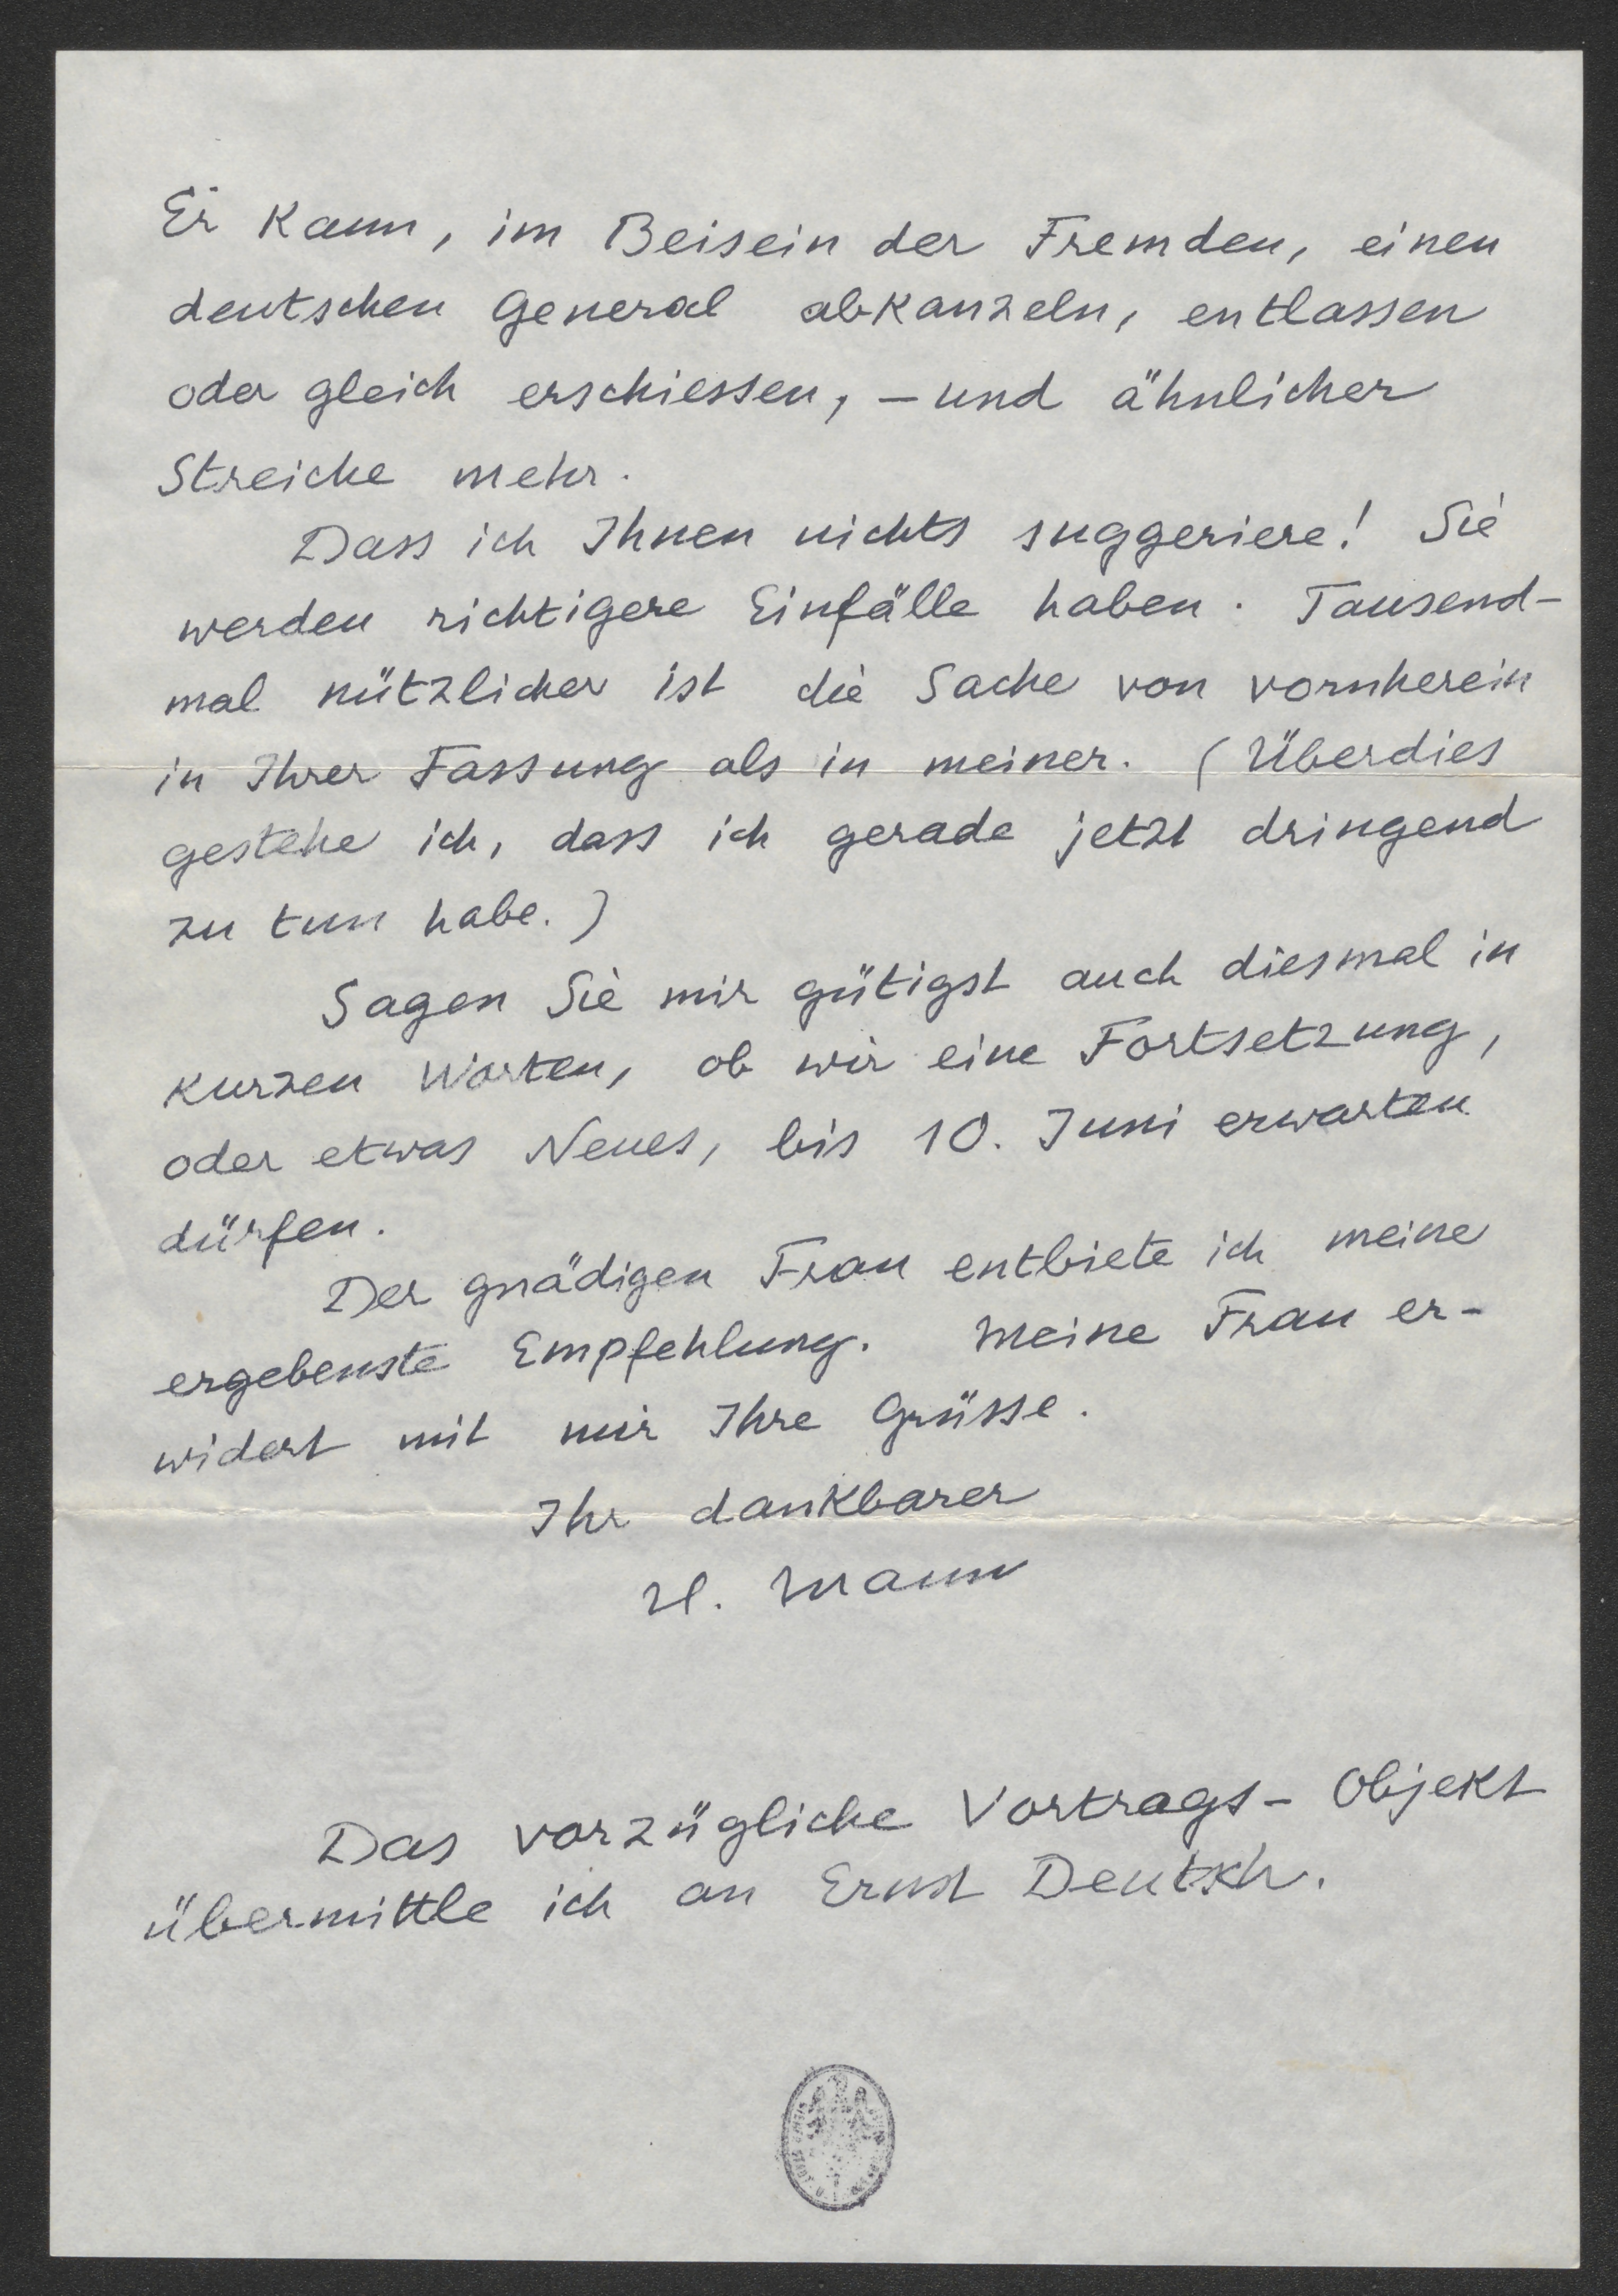 Er kann, im Beisein der Fremden, einen
deutschen General abkanzeln, entlassen
oder gleich erschiessen, – und ähnlicher
Streiche mehr.
Dass ich Ihnen nichts suggeriere! Sie
werden richtigere Einfälle haben. Tausend-
mal nützlicher ist die Sache von vornherein
in Ihrer Fassung als in meiner. (Überdies
gestehe ich, dass ich gerade jetzt dringend
zu tun habe.)
Sagen Sie mir gütigst auch diesmal in
kurzen Worten, ob wir eine Fortsetzung,
oder etwas Neues, bis 10. Juni erwarten
dürfen.
Der gnädigen Frau entbiete ich meine
ergebenste Empfehlung. Meine Frau er-
widert mit mir Ihre Grüsse.
Ihr dankbarer
H. Mann
Das vorzügliche Vortrags-Objekt
übermittle ich an Ernst Deutsch.